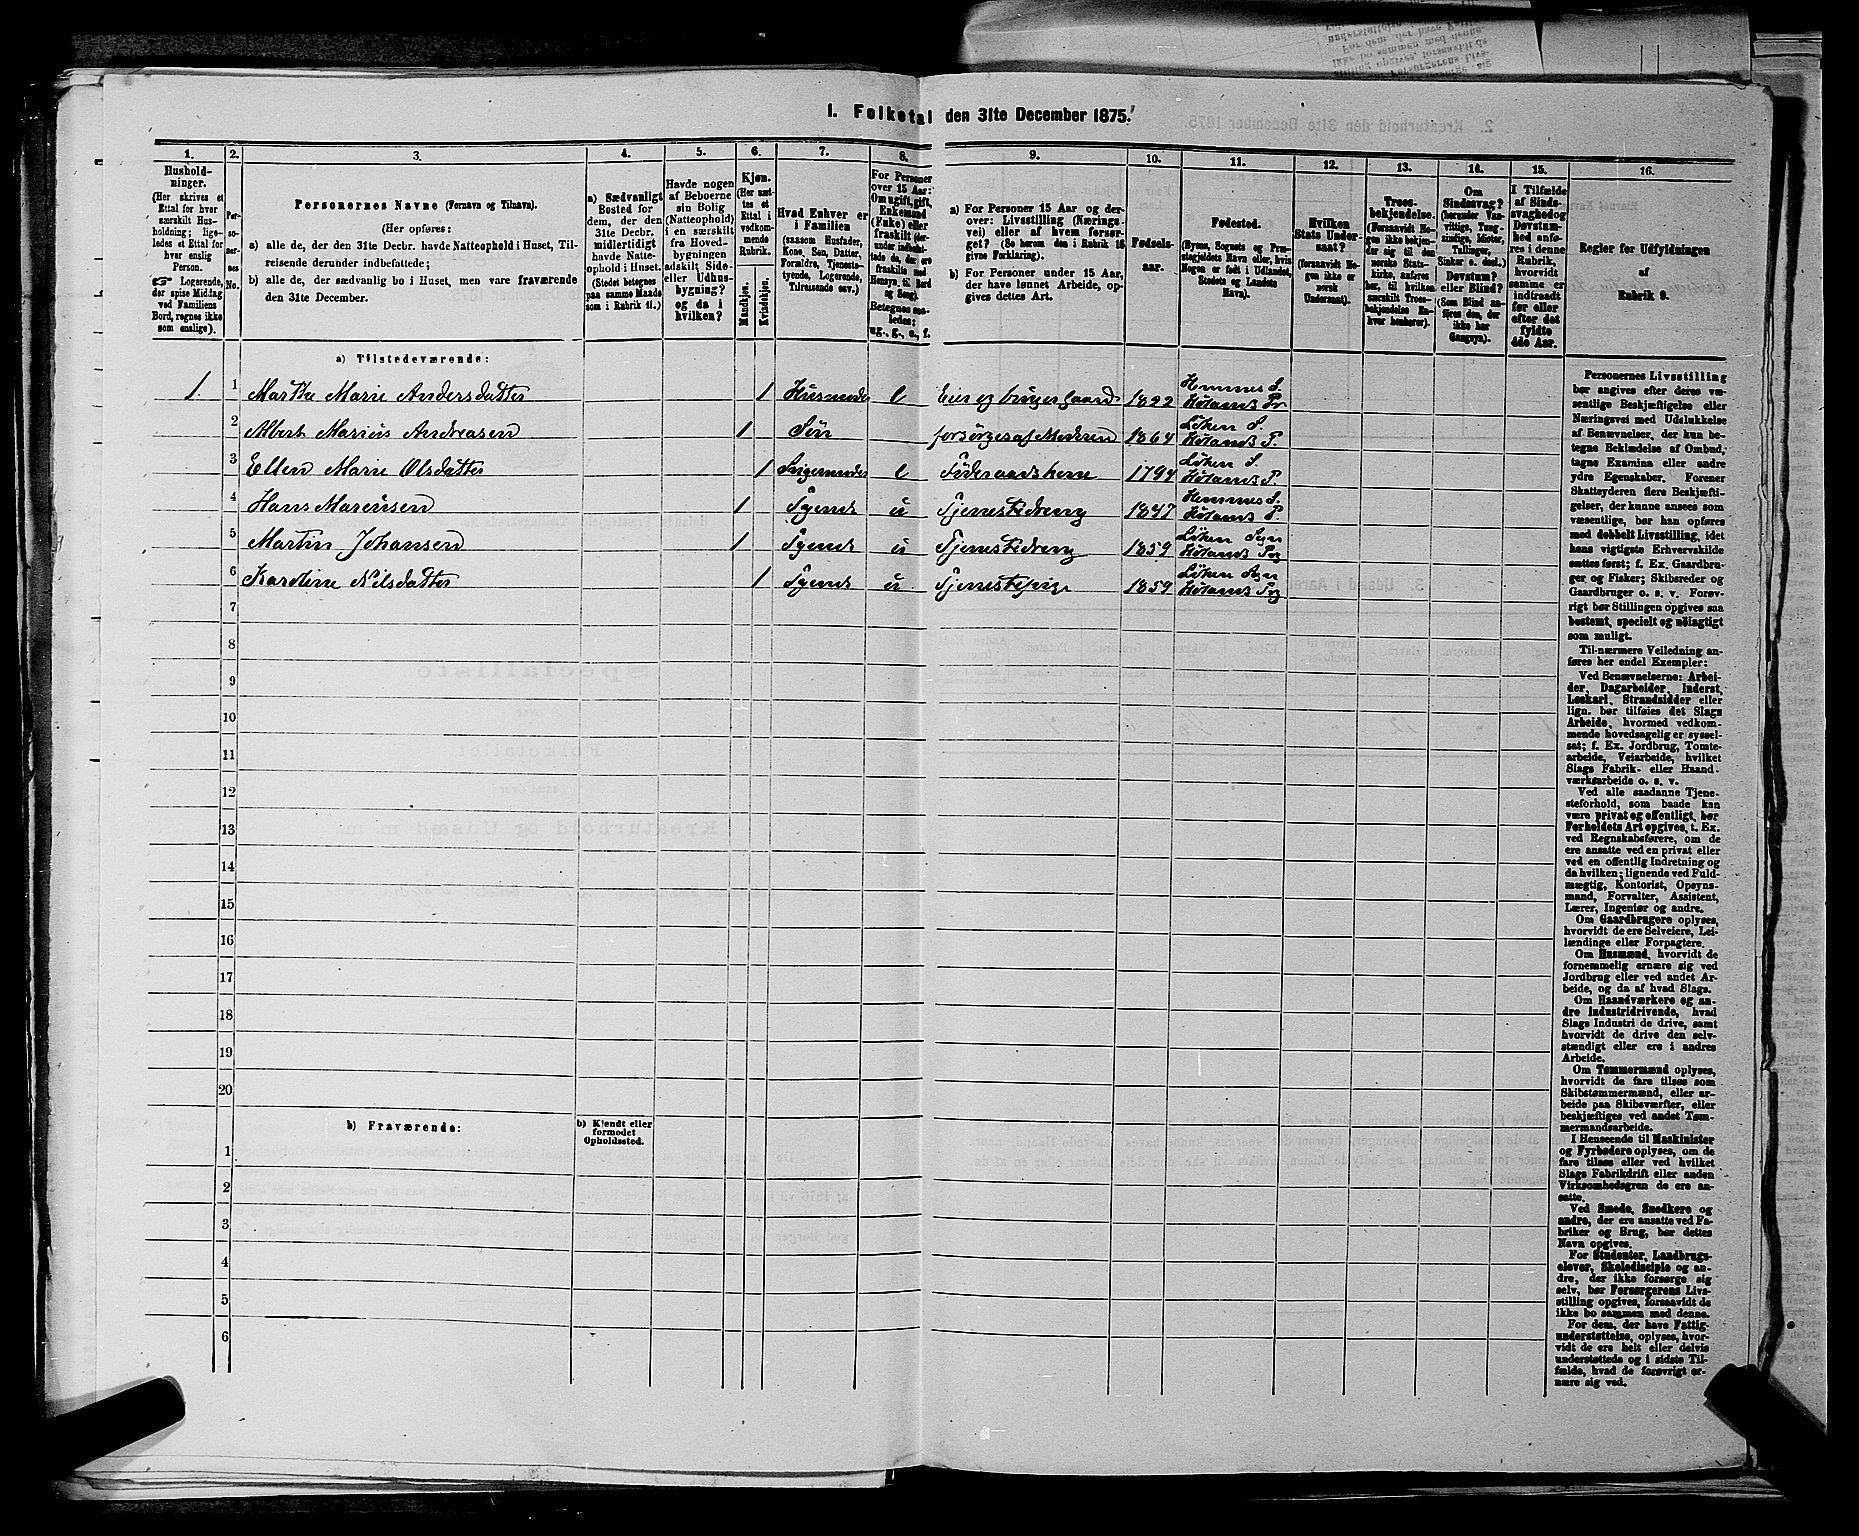 1. Folketal den 31te December 1875.
1. 2. 3. 4. 5. 6. 7. 8. 9. 10. 11. 12. 13. 14. 15. 16.
Hushold-
ninger.
(Her skrives et
Ettal for hver
særskilt Hus-
holdning; lige-
ledes et Ettal for
hver enslig
Person.
☞ Logerende,
der spise Middag
ved Familiens
Bord, regnes ikke
som enslige).
Per-
so-
ner-
nes
No.
Personernes Navne (Fornavn og Tilnavn).
(Her opføres:
a) alle de, der den 31te Decbr. havde Natteophold i Huset, Til-
reisende derunder indbefattede;
b) alle de, der sædvanlig bo i Huset, men vare fraværende
den 31te December.
a) Sædvanligt
Bosted for
dem, der den
31te Decbr.
midlertidigt
havde Natte-
ophold i Huset.
(Stedet betegnes
paa samme Maade
som i Rubrik 11.)
Havde nogen
af Beboerne
sin Bolig
(Natteophold)
i en særskilt
fra Hoved-
bygningen
adskilt Side-
eller Udhus-
bygning?
og da i
hvilken?
Kjøn.
(Her sæt-
tes et
Ettal i
vedkom-
mende
Rubrik.
Mandkjøn.
Kvindekjøn.
Hvad Enhver er
i Familien
(saasom Husfader,
Kone, Søn, Datter,
Forældre, Tjeneste-
tyende, Logerende,
Tilreisende osv.)
For Personer
over 15 Aar:
Om ugift, gift,
Enkemand
(Enke) eller
fraskilt (der-
under indbefat-
tede de, der ere
fraskilte med
Hensyn til Bord
og Seng).
Betegnes saa-
ledes:
ug., g., e., f.
a) For Personer 15 Aar og der-
over: Livsstilling (Nærings-
vei) eller af hvem forsør-
get? (Se herom den i Rubrik 16
givne Forklaring).
b) For Personer under 15 Aar,
der have lønnet Arbeide, op-
gives dettes Art.
Fødsels-
aar.
Fødested.
(Byens, Sognets og Præ-
stegjeldets Navn eller, hvis
Nogen er født i Udlandet,
Stedets og Landets
Navn).
Hvilken
Stats Under-
saat?
(forsaavidt No-
gen ikke er
norsk
Undersaat).
Troes-
bekjendelse.
(Forsaavidt No-
gen ikke bekjen-
der sig til den
norske Stats-
kirke, anføres
her, til hvilken
særskilt Troes-
bekjendelse En-
hver henhører).
Om
Sindssvag?
(herunder Van-
vittige, Tung-
sindige, Idioter,
Tullinger,
Sinker o. desl.)
Døvstum?
eller Blind?
(Som Blind an-
føres den, der
ikke har
Gangsyn).
I Tilfælde
af Sinds-
svaghed og
Døvstum-
hed anfø-
res i denne
Rubrik,
hvorvidt
samme er
indtraadt
før eller
efter det
fyldte
4de Aar.
Regler for Udfyldningen
af
Rubrik 9.
a) Tilstedeværende:
1. 1 Marthe Marie Andersdatter 1 Husmoder e Eier og bruger gaard 1822 Hemnes S. Hølands Pr
2 Albert Marius Andreasen 1 Søn forsørges af Moderen 1864 Løken S. Hølands P.
3 Ellen Marie Olsdatter 1 e Føderaadskone 1794 Løken S. Hølands P.
4 Hans Marensen 1 Tyende u Tjenestedreng 1847 Hemnes S. Hølands P.
5 Martin Johansen 1 Tyende u Tjenestedreng 1859 Løken Sgn Hølands Prg
6 Karoline Nilsdatter 1 Tyende u Tjenestepige 1859 Løken Sgn Hølands Prg
7
8
9
10
11
12
13
14
15
16
17
18
19
20
b) Fraværende:
b) Kjendt eller
formodet
Opholdssted.
1
2
3
4
5
6
Personernes Livsstilling
bør angives efter deres væ-
sentlige Beskjæftigelse eller
Næringsvei med Udelukkelse
af Benævnelser, der kun be-
tegne Beklædelse af Ombud,
tagne Examina eller andre
ydre Egenskaber. Forener
Skatteyderen flere Beskjæfti-
gelser, der kunne ansees som
væsentlige, bør han opføres
med dobbelt Livsstilling, idet
hans vigtigste Erhvervskilde
sættes først; f. Ex. Gaardbru-
ger og Fisker; Skibsreder og
Gaardbruger o. s. v. Forøv-
rigt bør Stillingen opgives saa
bestemt, specielt og nøiagtigt
som muligt.
Til nærmere Veiledning an-
føres her endel Exempler:
Ved Benævnelserne: Arbei-
der, Dagarbeider, Inderst,
Løskarl, Strandsidder eller
lign. bør tilføies det Slags
Arbeide, hvormed vedkom-
mende hovedsagelig er syssel-
sat; f. Ex. Jordbrug, Tomte-
arbeide, Veiarbeide, hvilket
Slags Fabrik- eller Haand-
værksarbeide o. s. v.
Ved alle saadanne Tjene-
steforhold, som baade kan
være privat og offentligt, bør
Forholdets Art opgives, t. Ex.
ved Regnskabsførere, om de
ere ansatte ved en privat eller
ved en offentlig Indretning og
da hvilken; lignende ved Fuld-
mægtig, Kontorist, Opsyns-
mand, Forvalter, Assistent,
Lærer, Ingeniør og andre.
Om Gaardbrugere oplyses,
hvorvidt de ere Selveiere, Lei-
lændinge eller Forpagtere.
Om Husmænd, hvorvidt de
fornemmelig ernære sig ved
Jordbrug eller ved andet Ar-
beide, og da af hvad Slags.
Om Haandværkere og an-
dre Industridrivende, hvad
Slags Industri de drive, samt
hvorvidt de drive den selv-
stændigt eller ere i andres
Arbeide.
Om Tømmermænd oplyses,
hvorvidt de fare tilsøs som
Skibstømmermænd, eller ar-
beide paa Skibsværfter, eller
beskjæftiges ved andet Tøm-
mermandsarbeide.
I Henseende til Maskinister
og Fyrbødere oplyses, om de
fare tilsøs eller ved hvilket
Slags Fabrikdrift eller anden
Virksomhedsgren de ere an-
satte.
Ved Smede, Snedkere og
andre, der ere ansatte ved Fa-
briker og Brug, bør dettes
Navn opgives.
For Studenter, Landbrugs-
elever, Skoledisciple og an-
dre, der ikke forsørge sig
selv, bør Forsørgerens Livs-
stilling opgives, forsaavidt de
ikke bo sammen med denne.
For dem, der have Fattig-
understøttelse, oplyses, hvor-
vidt de ere helt eller delvis
understøttede og i sidste Til-
fælde, hvad de forøvrigt er-
nære sig ved.